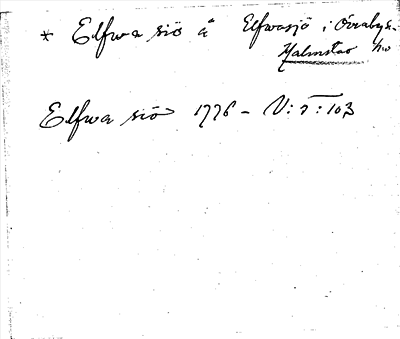 * Elfwa siö å Elfwasjö i Övraby s.
Halmstad hd
Elfwa siö 1776 - V: 7: 103